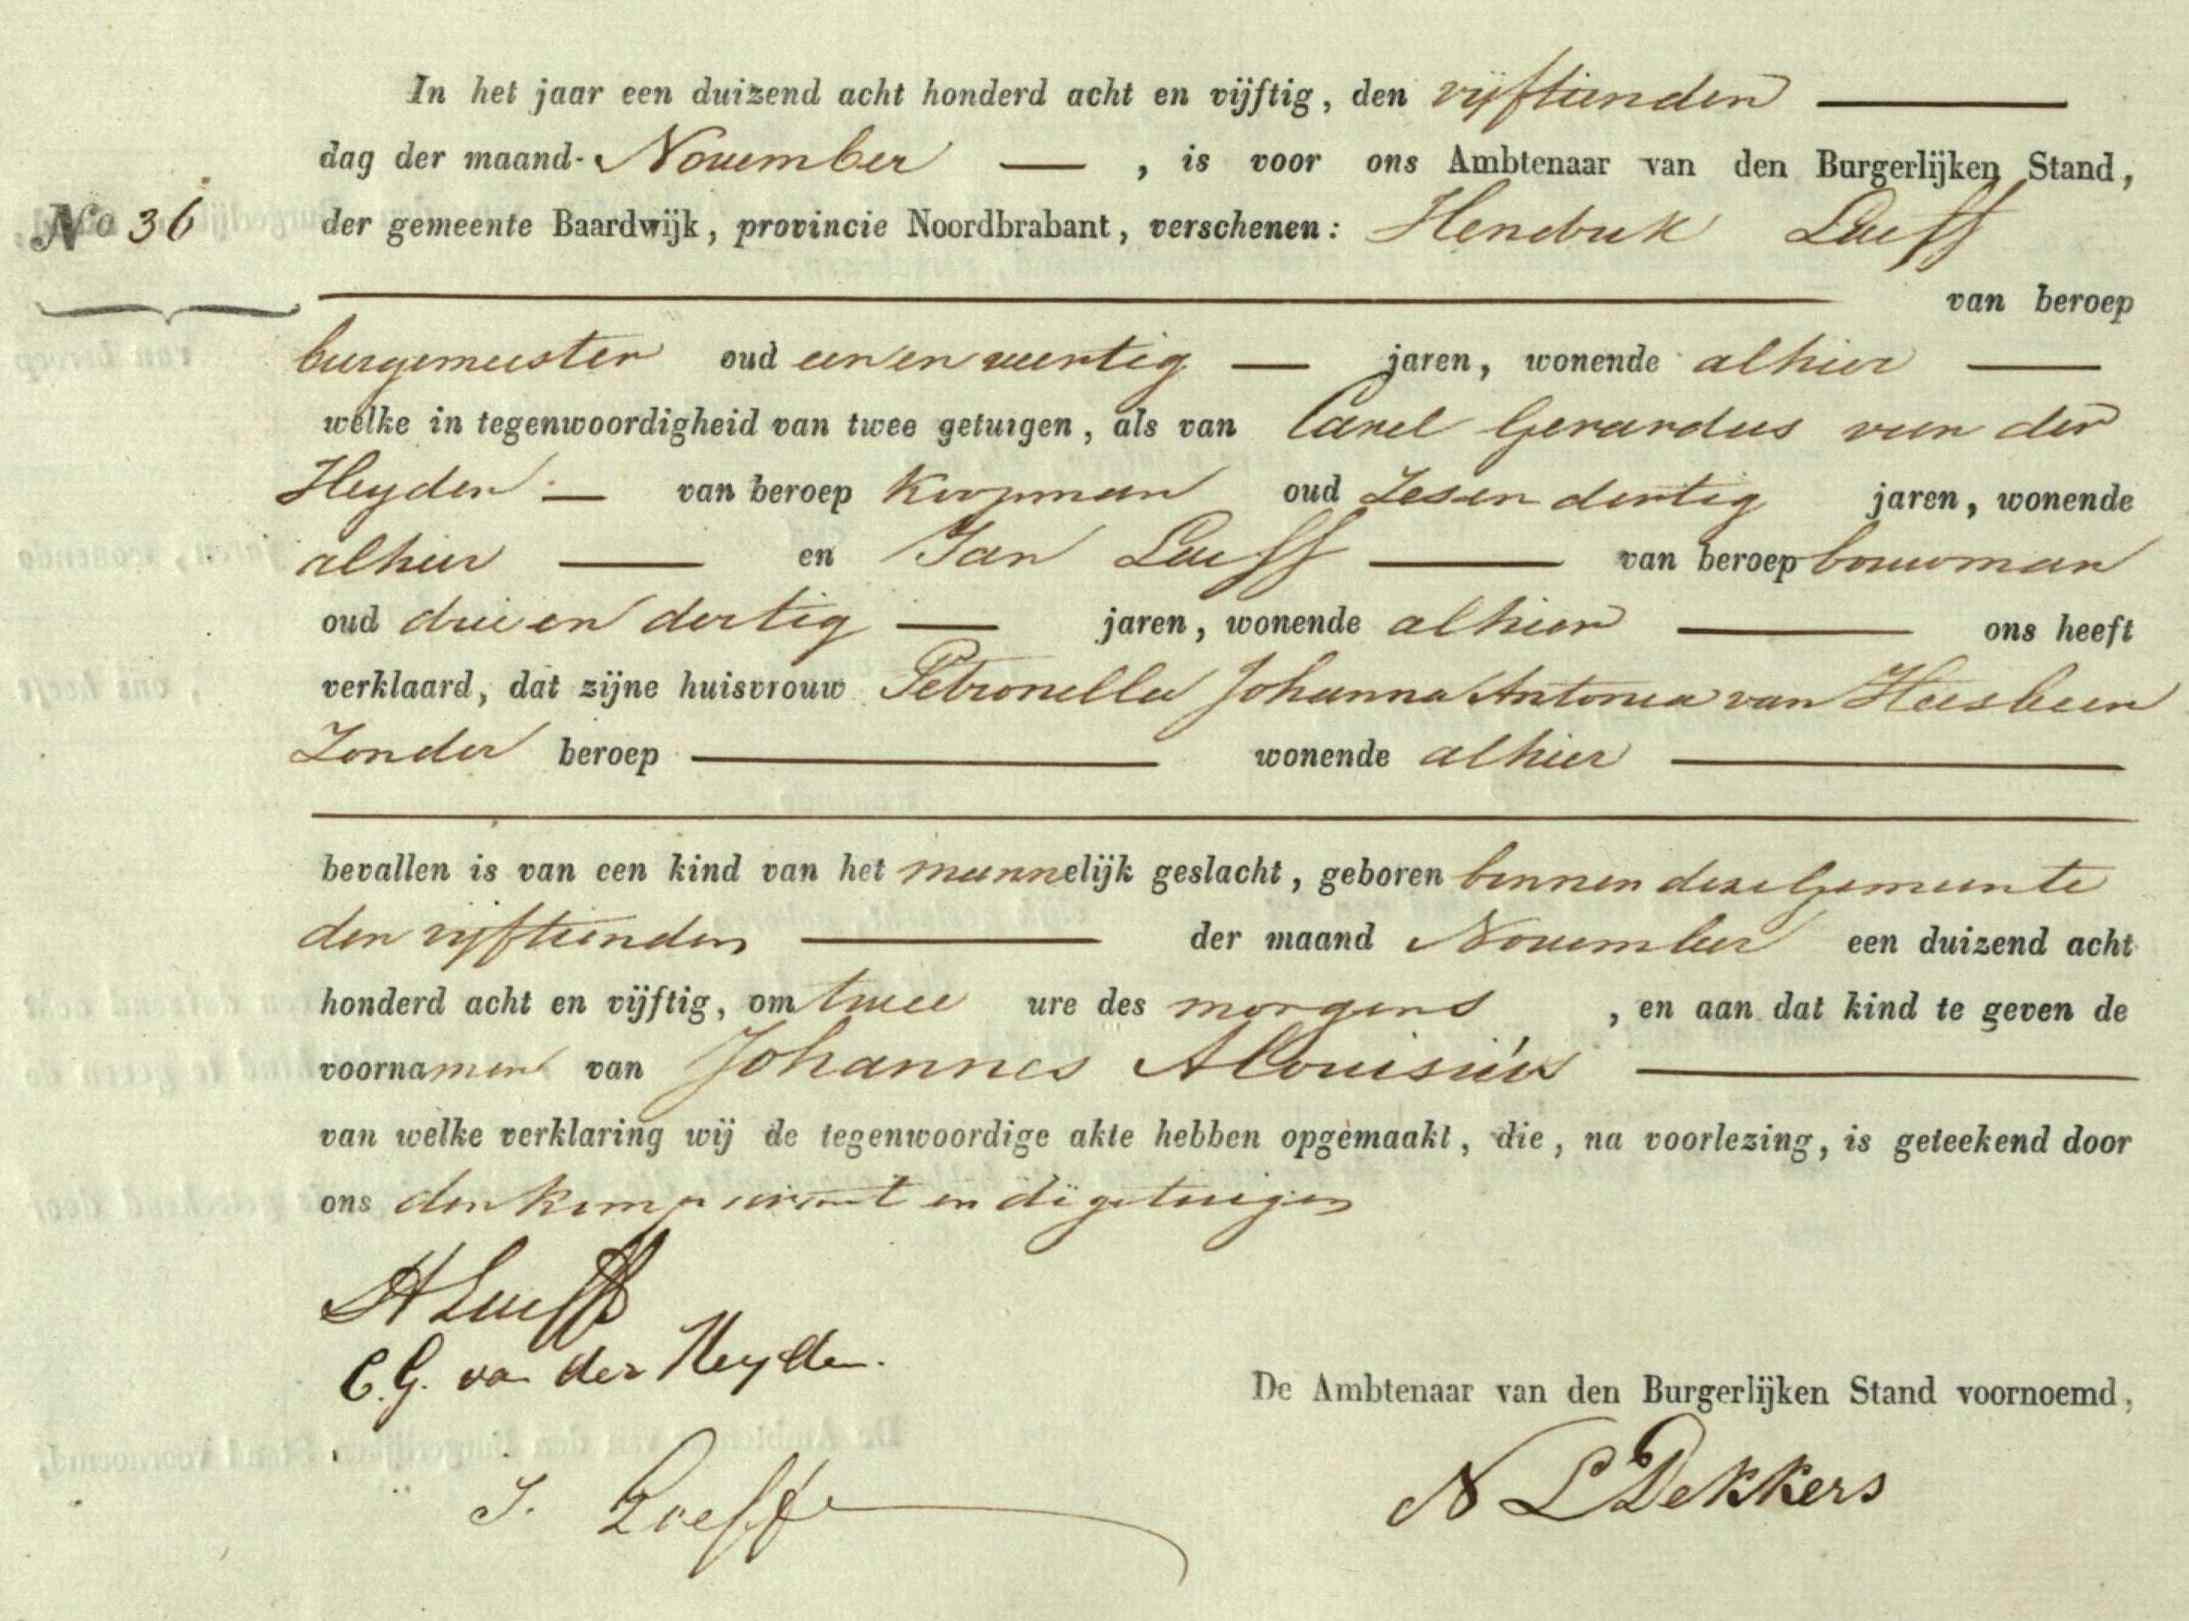 In het jaar een duizend acht honderd acht en vijftig, den vijftienden
dag der maand November, is voor ons Ambtenaar van den Burgerlijken Stand,
No 36 der gemeente Baardwijk, provincie Noordbrabant, verschenen: Hendrik Loeff
van beroep
burgemeester oud een en veertig jaren, wonende alhier
welke in tegenwoordigheid van twee getuigen, als van Carel Gerardus van der
Heyden van beroep Koopman oud Zes en dertig jaren, wonende
alhier en Jan Loeff van beroep bouwman
oud drie en dertig jaren, wonende alhier ons heeft
verklaard, dat zijne huisvrouw Petronella Johanna Antonia van Heesbeen
Zonder beroep wonende alhier
bevallen is van een kind van het mannelijk geslacht, geboren binnen deze Gemeente
den vijftienden der maand November een duizend acht
honderd acht en vijftig, om twee ure des morgens, en aan dat kind te geven de
voornamen van Johannes Alouisiús
van welke verklaring wij de tegenwoordige akte hebben opgemaakt, die, na voorlezing, is geteekend door
ons den komparant en de getuigen
H Loeff
C. G. van der Heyden.
De Ambtenaar van den Burgerlijken Stand voornoemd,
J. Loeff
N L Dekkers